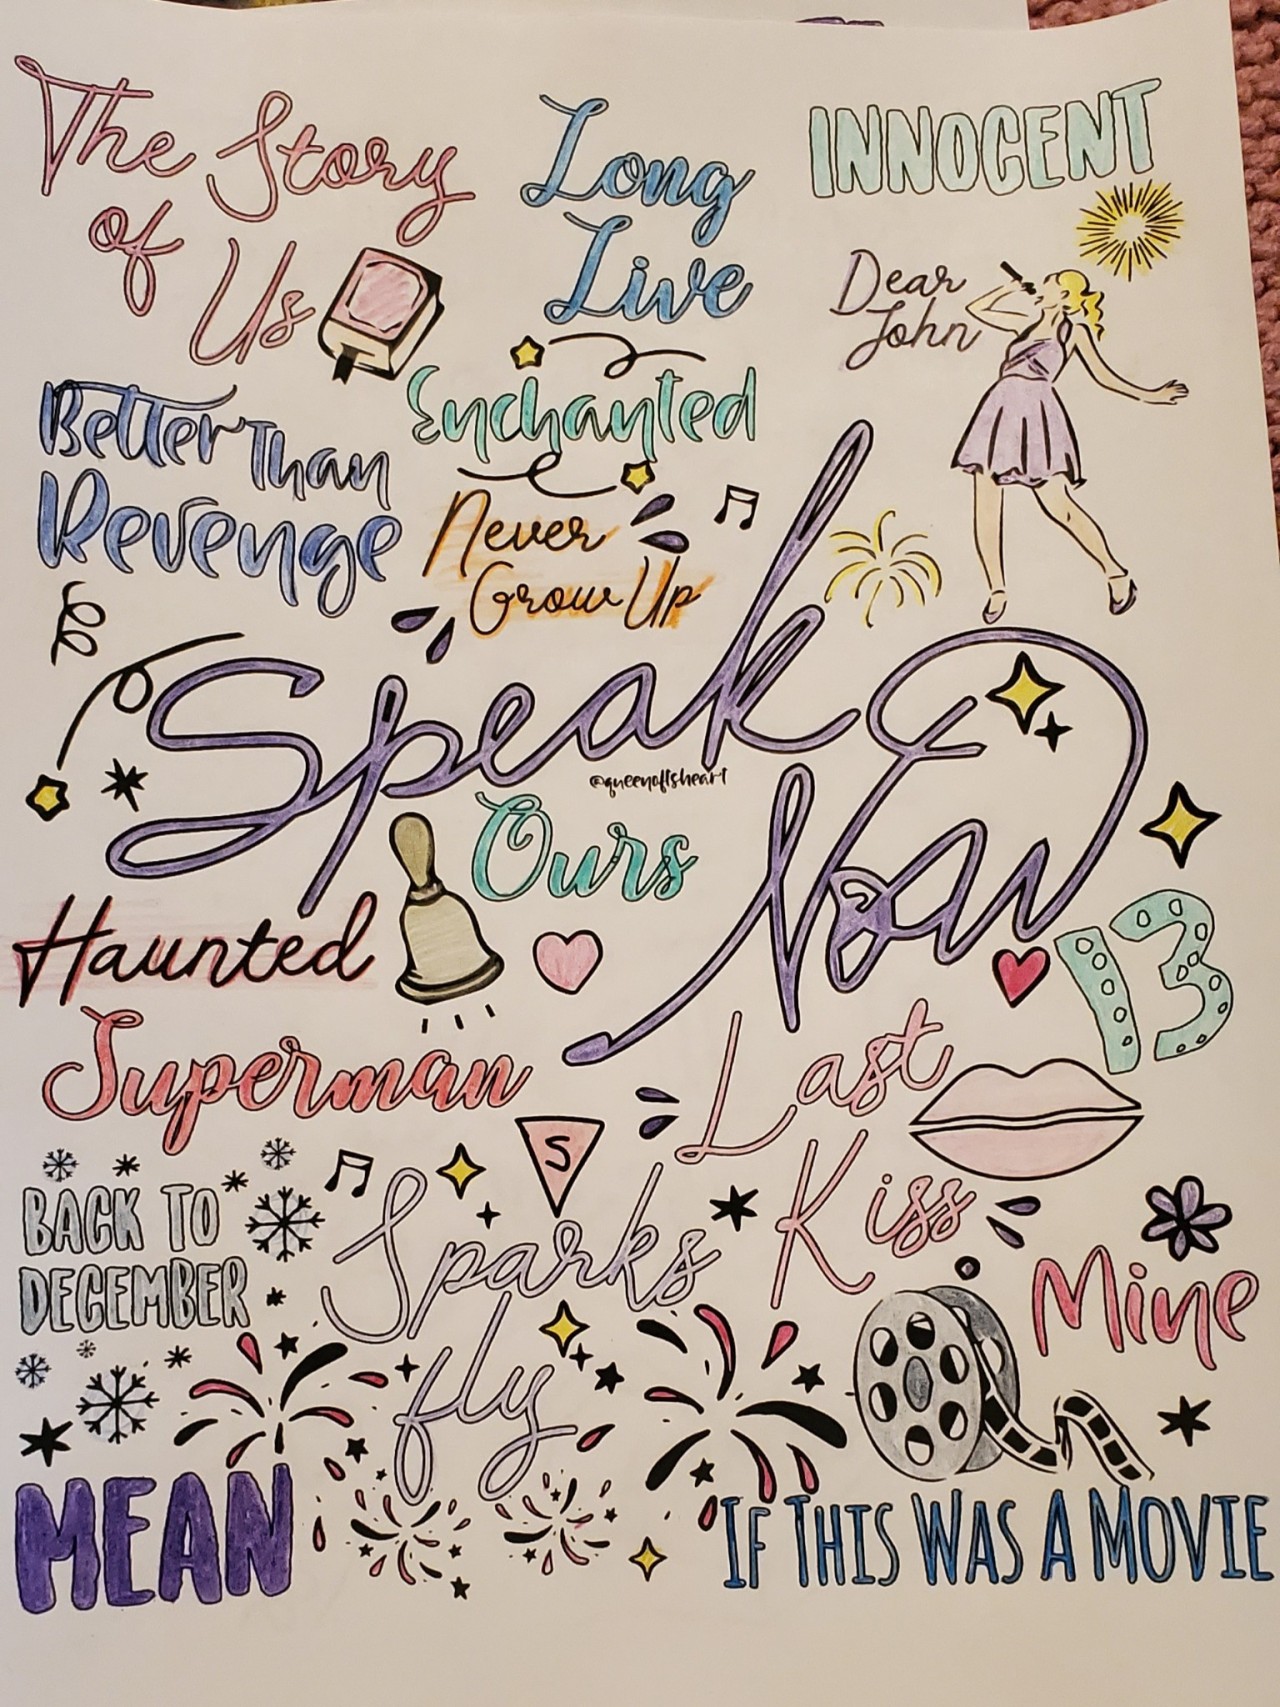 The Story
of Us
Long
Live
INNOCENT
Dear
John
Better Than
Revenge
Enchanted
Never
Grow Up
Speak
Now
@queenoftsheart
Ours
13
Haunted
Superman
S
Last
Kiss
BACK TO
DECEMBER
Sparks
fly
Mine
MEAN
IF THIS WAS A MOVIE